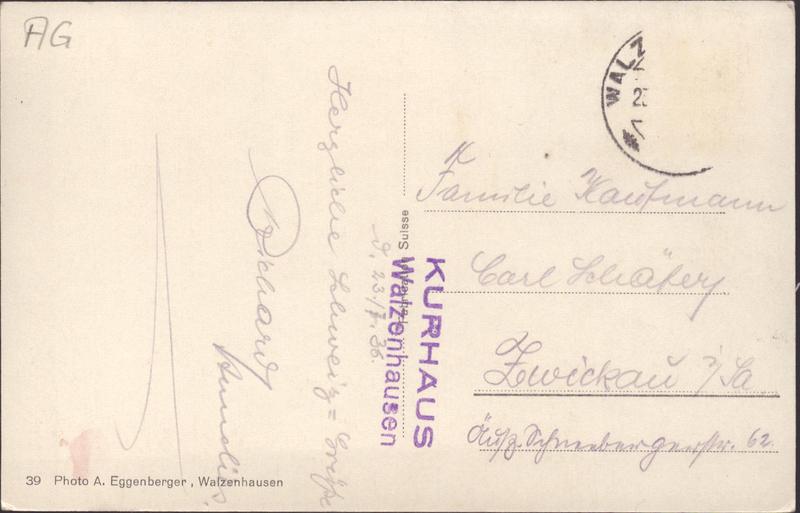 AG
WALZ
Herzliche Schweiz=Grüße
d. 23./7. 36.
Richard
KURHAUS
Walzenhausen
Suisse
Familie Kaufmann
Carl Schäfer
Zwickau i/Sa
Äuß. Schneebergerstr. 62.
39 Photo A. Eggenberger, Walzenhausen